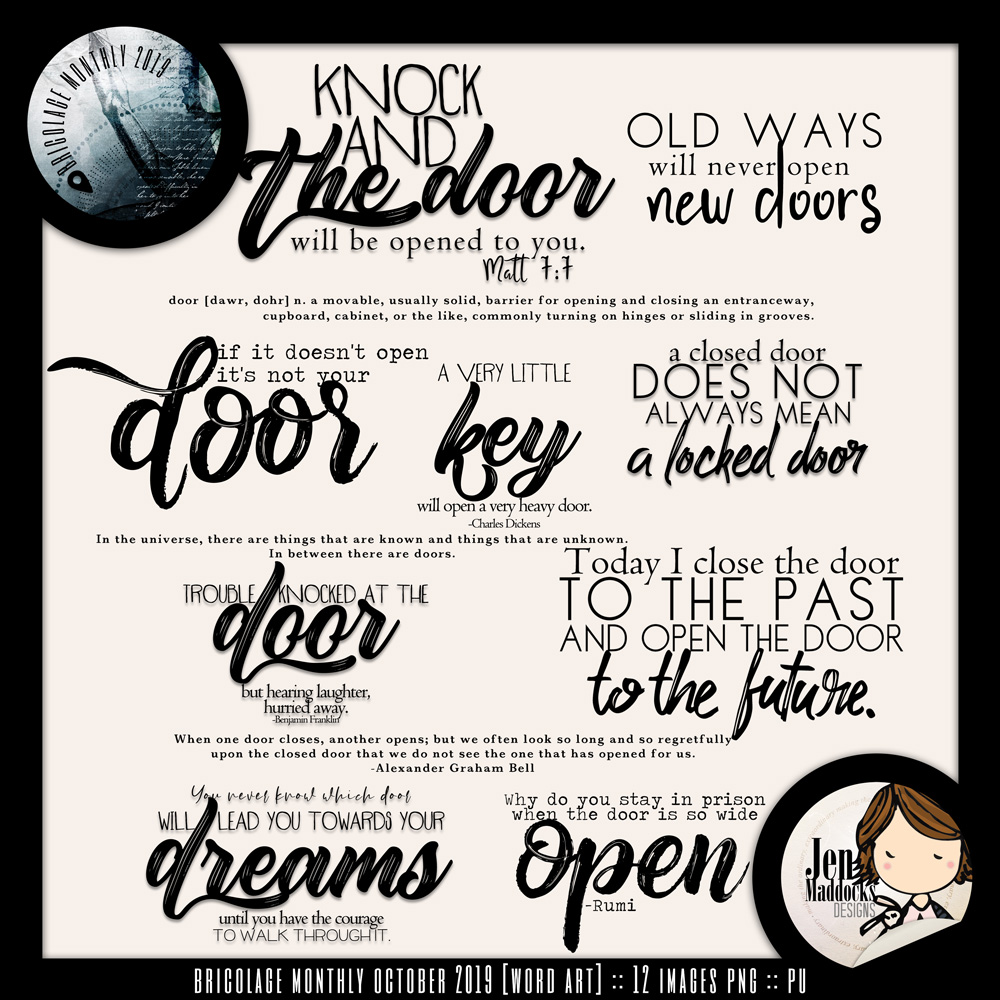 BRICOLAGE MONTHLY 2019
KNOCK
AND
the door
will be opened to you.
Matt 7:7
OLD WAYS
will never open
new doors
door [dawr, dohr] n. a movable, usually solid, barrier for opening and closing an entranceway,
cupboard, cabinet, or the like, commonly turning on hinges or sliding in grooves.
if it doesn't open
it's not your
door
A VERY LITTLE
key
will open a very heavy door.
-Charles Dickens
a closed door
DOES NOT
ALWAYS MEAN
a locked door
In the universe, there are things that are known and things that are unknown.
In between there are doors.
TROUBLE KNOCKED AT THE
door
but hearing laughter,
hurried away.
-Benjamin Franklin
Today I close the door
TO THE PAST
AND OPEN THE DOOR
to the future.
When one door closes, another opens; but we often look so long and so regretfully
upon the closed door that we do not see the one that has opened for us.
-Alexander Graham Bell
You never know which door
WILL LEAD YOU TOWARDS YOUR
dreams
until you have the courage
TO WALK THROUGH IT.
Why do you stay in prison
when the door is so wide
open
-Rumi
Jen
Maddocks
DESIGNS
BRICOLAGE MONTHLY OCTOBER 2019 [WORD ART] :: 12 IMAGES PNG :: PU